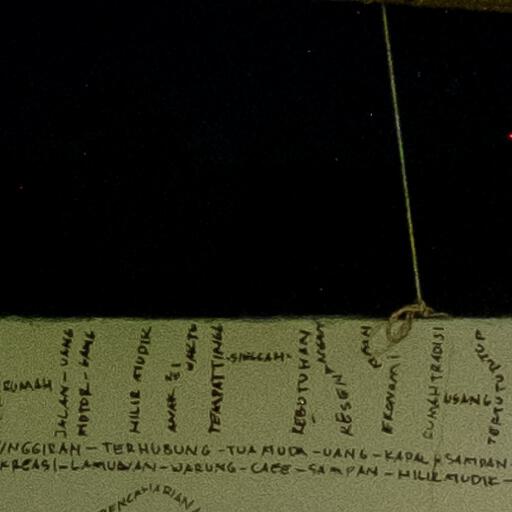 RUMAH
JALAN-UANG
MOTOR-UANG
HILIR MUDIK
ANAK
WAKTU
TEMPATTINGGAL
-SINGGAH-
KEBUTUHAN
KESEN
EKONOMI
RUMAHTRADISI
USANG
TERTUTUP
INGGIRAN-TERHUBUNG-TUAMUDA-UANG-KAPAL/SAMPAN
KREASI-LAMUNAN-WARUNG-CAFE-SAMPAN-HILIRMUDIK-
PENCAHARIAN